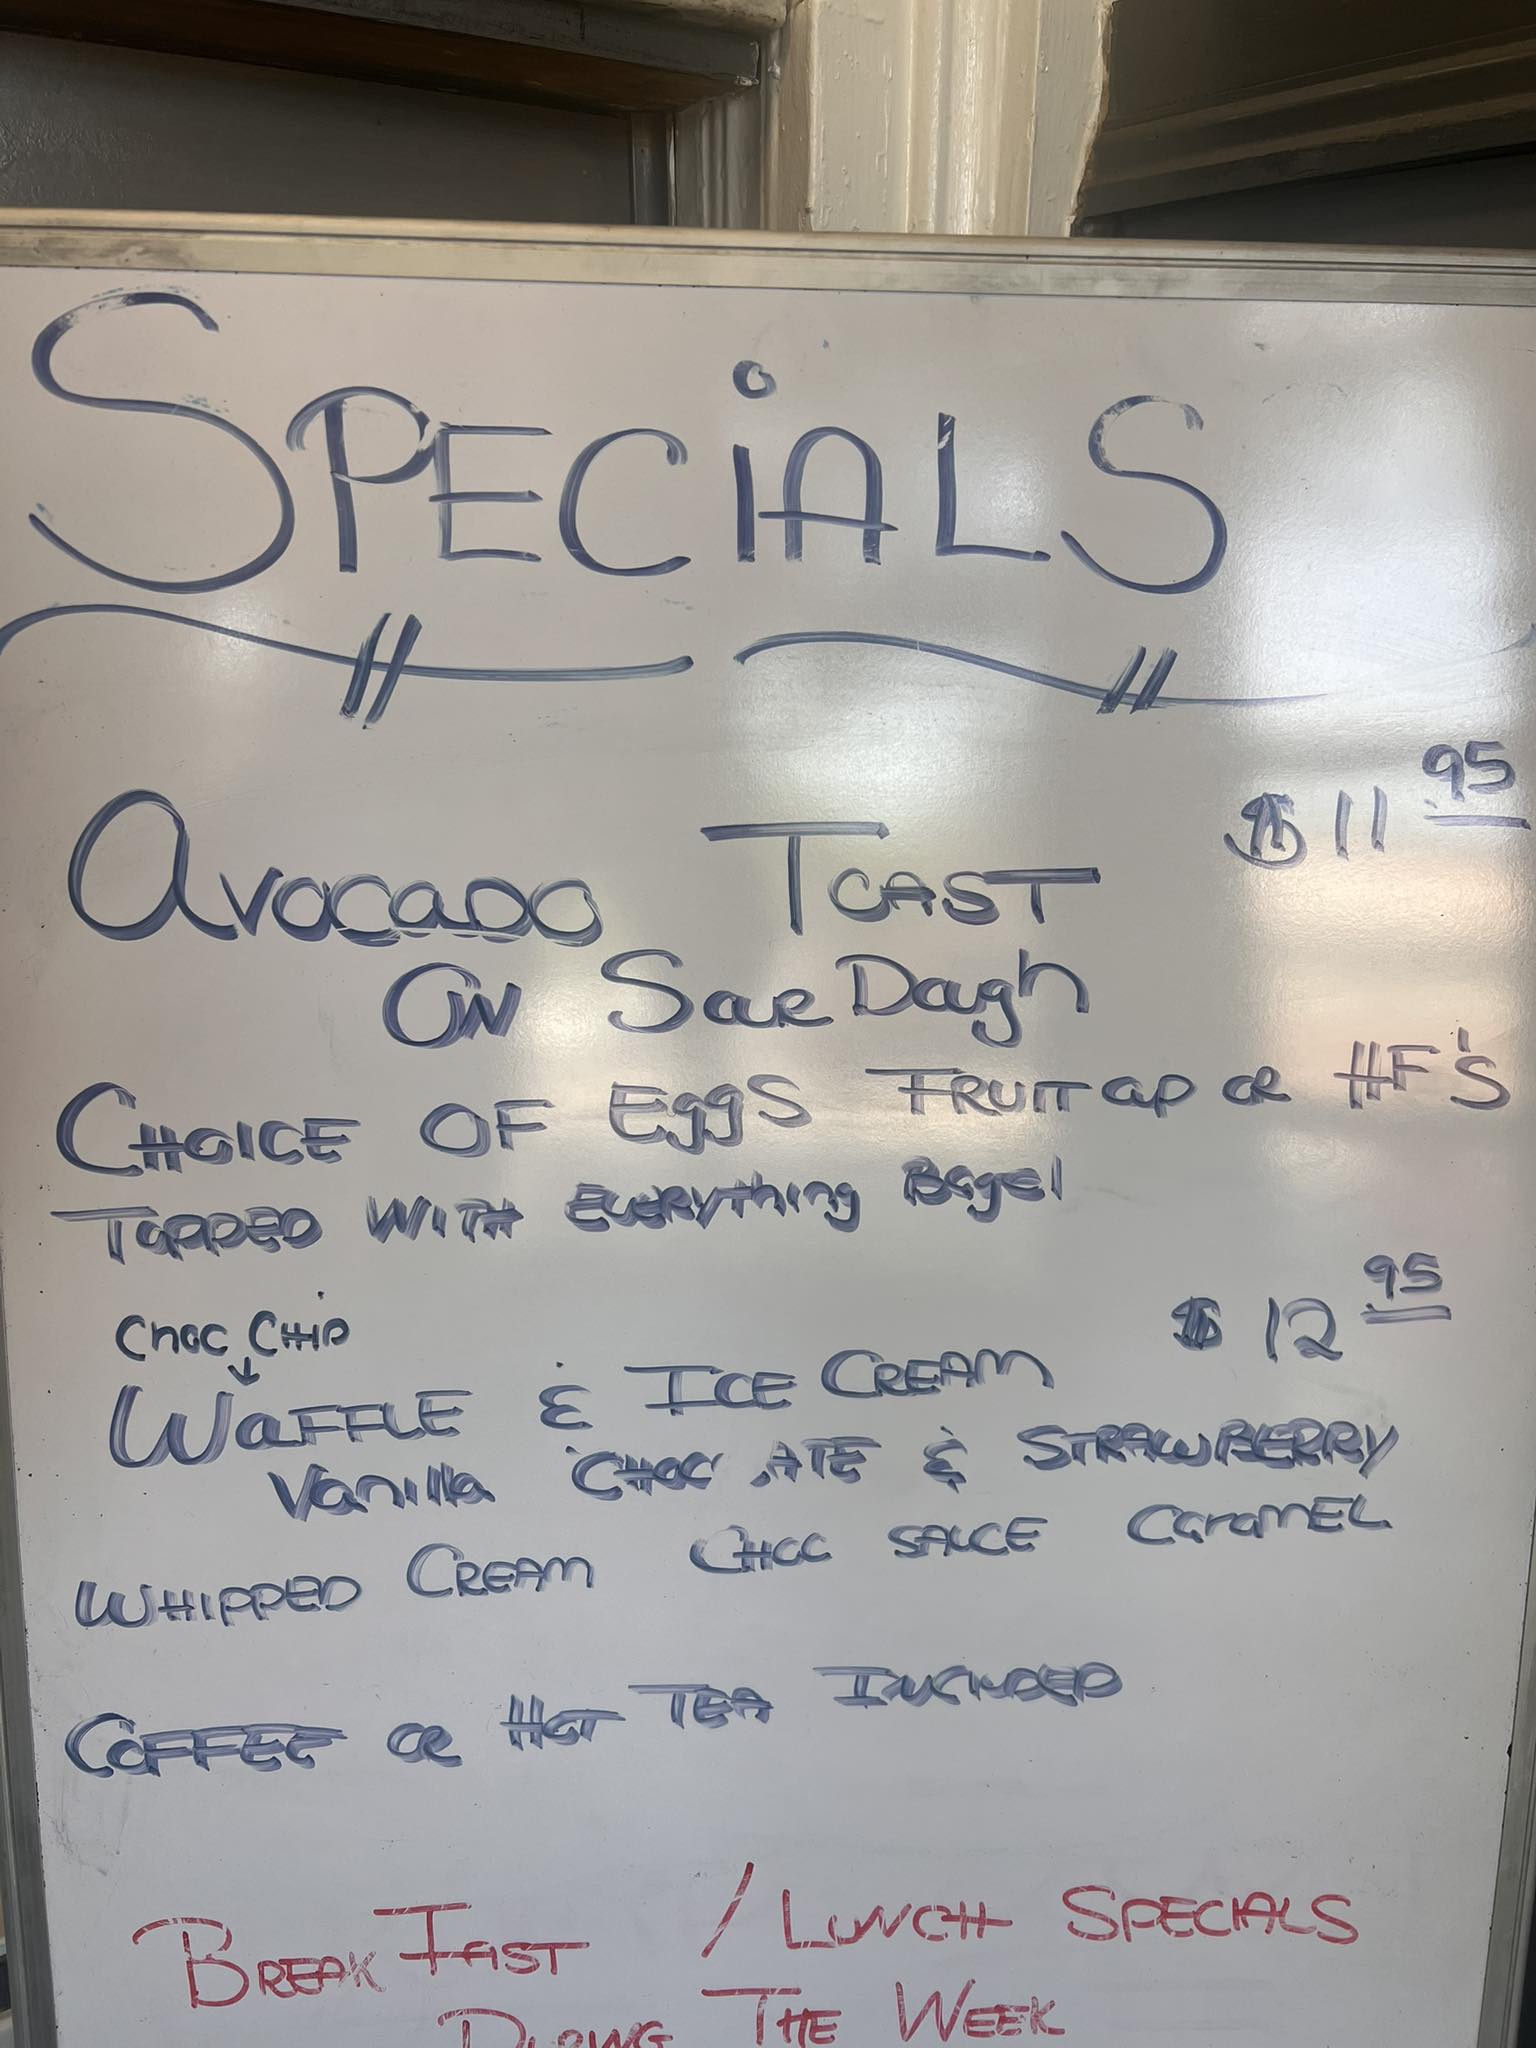 SPECiALS
$11 95
Avocado TOAST
ON SourDough
CHOICE OF EggS FRUIT cup OR HF'S
TOPPED WITH EVERYthing Bagel
Choc CHIP
$12 95
WaFFLE & ICE CREAM
Vanilla CHOC ATE & STRAWBERRY
WHIPPED CREAM CHOC SAUCE CaramEL
COFFEE OR HOT TEA INCLUDED
BREAKFAST / LUNCH SPECIALS
DURING THE WEEK